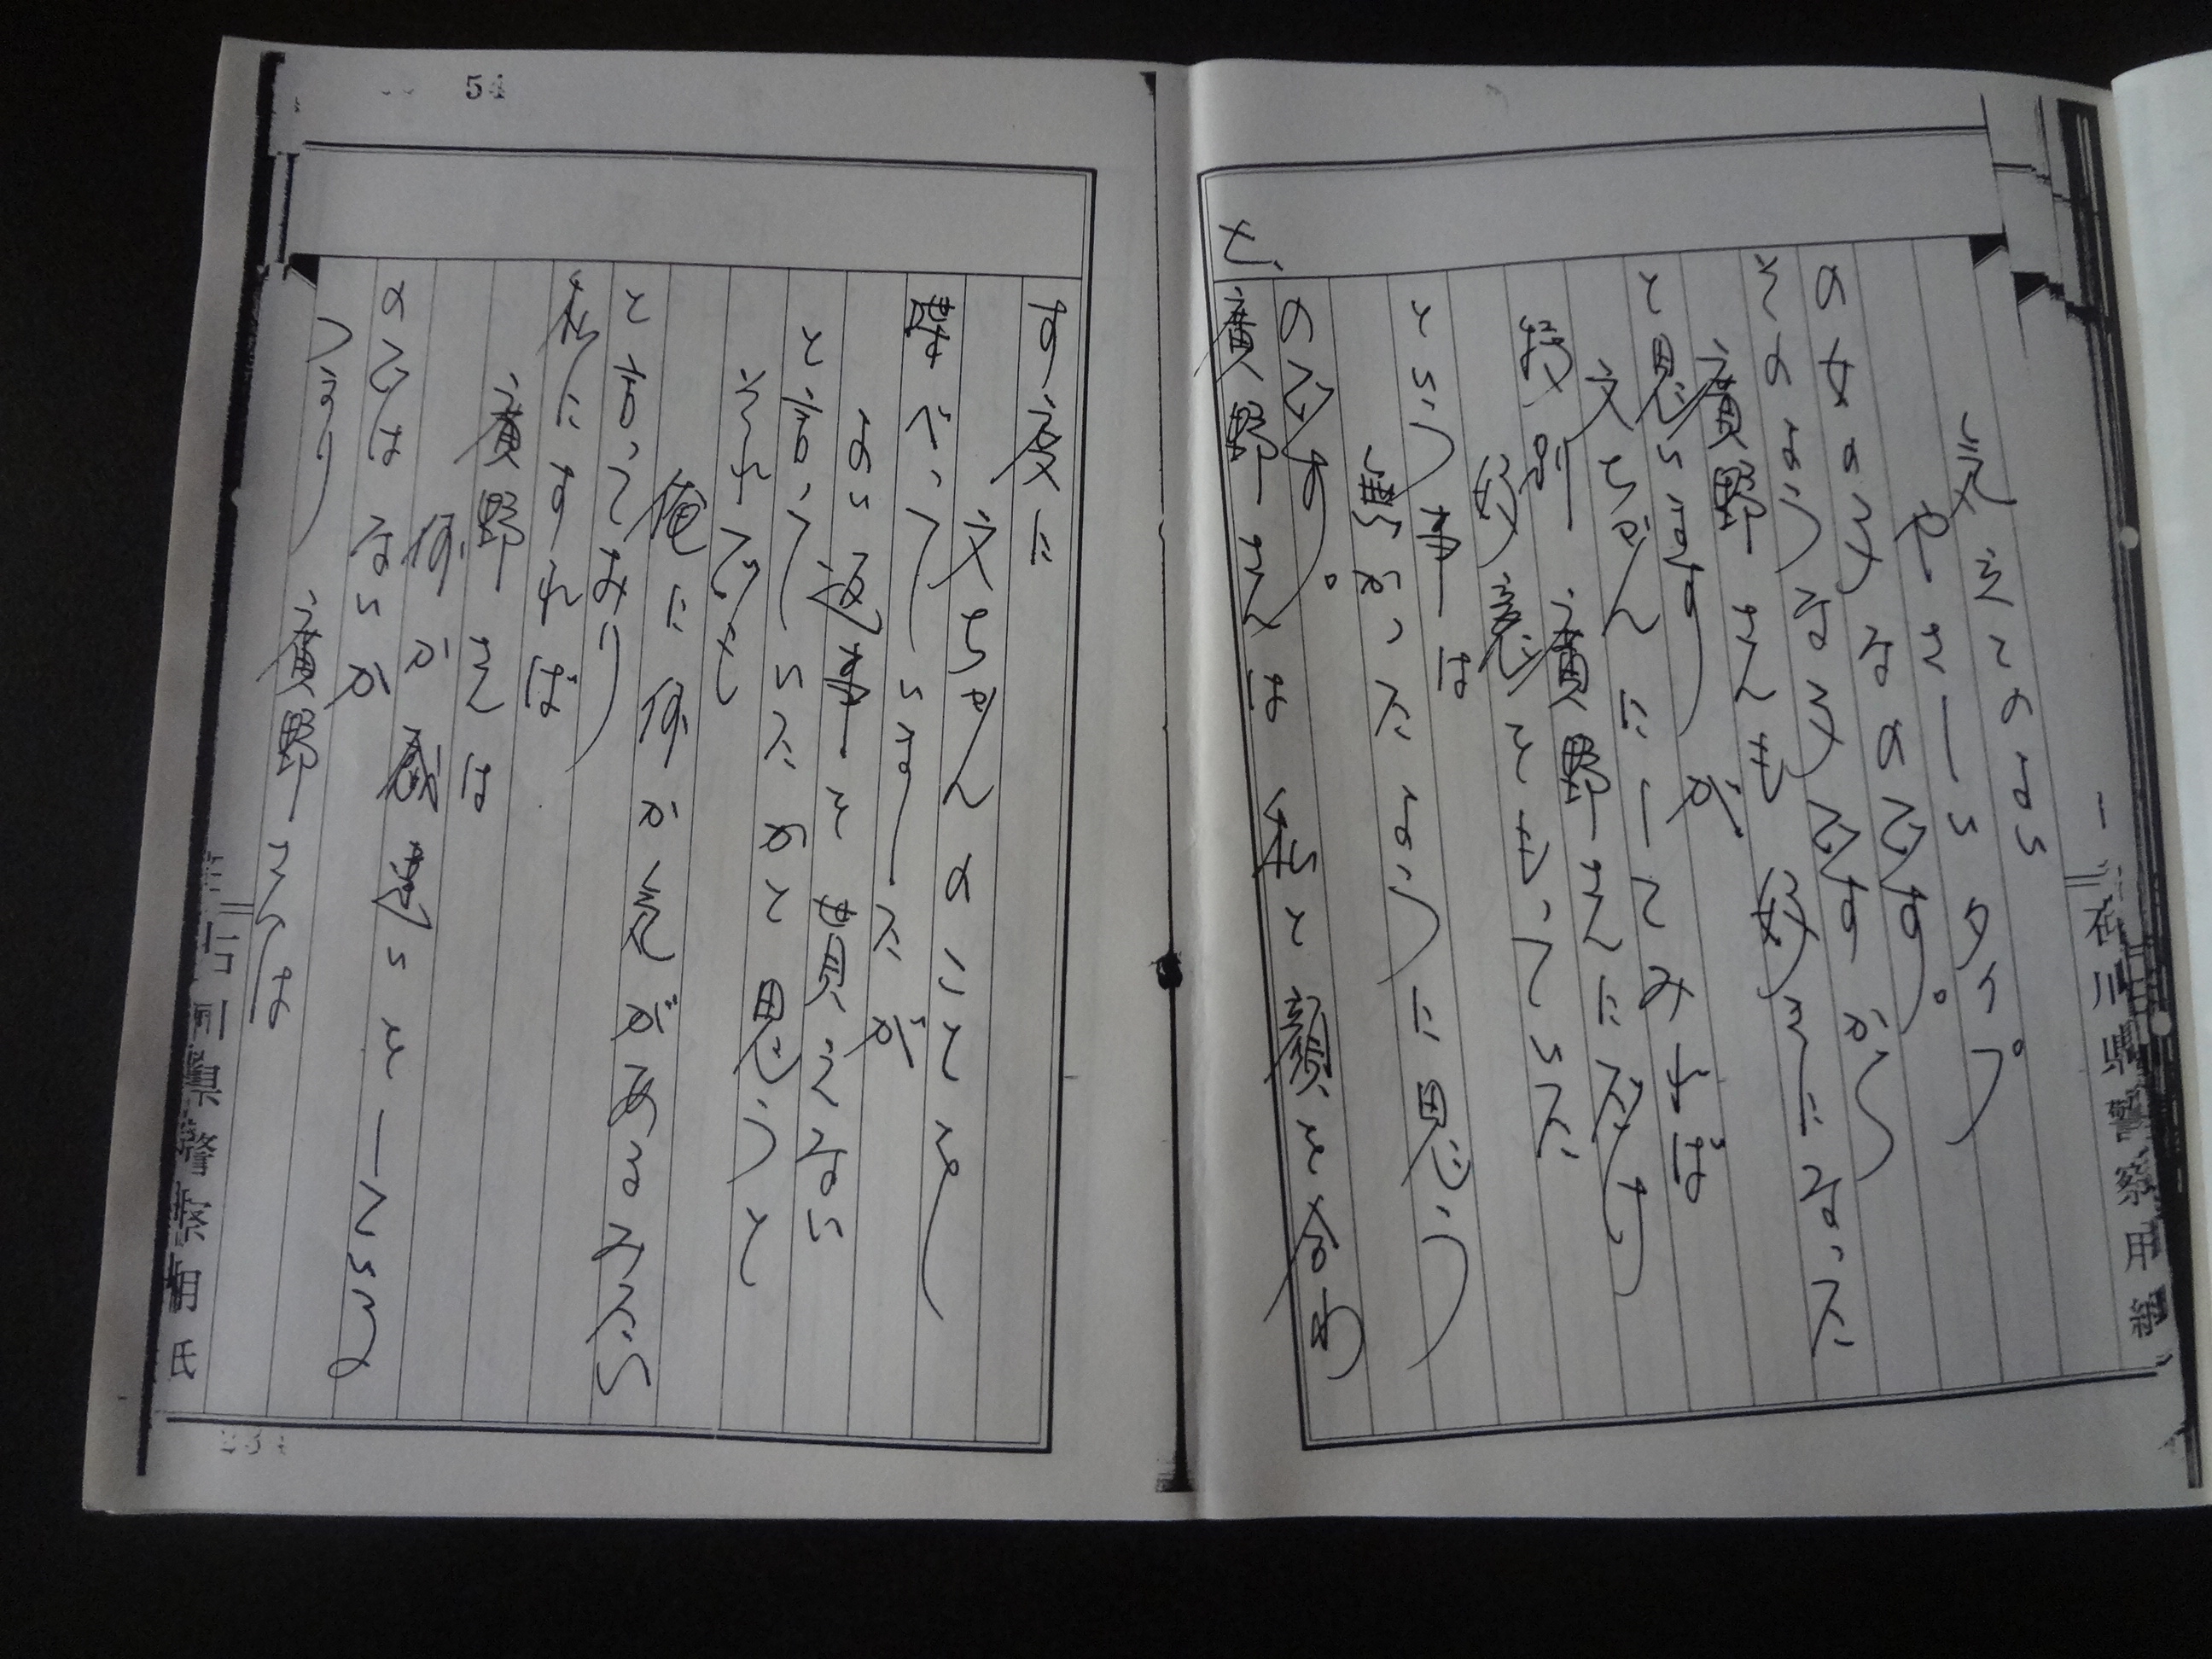 気立てのよい
やさしいタイプ
の女の子なのです。
そのような子ですから
廣野さんも好きになった
と思いますが
文ちゃんにしてみれば
特別廣野さんに対す
好意をもっていた
という事は
無かったように思う
のです。
七、廣野さんは私と顔を合わ
石川県警察用紙
す度に
文ちゃんのことを
喋べっていましたが
よい返事を貰えない
と言っていたかと思うと
それでも
俺に何か気があるみたい
と言ってみたり
私にすれば
廣野さんは
何か感違いをしている
のではないか
つまり
廣野さんは
54